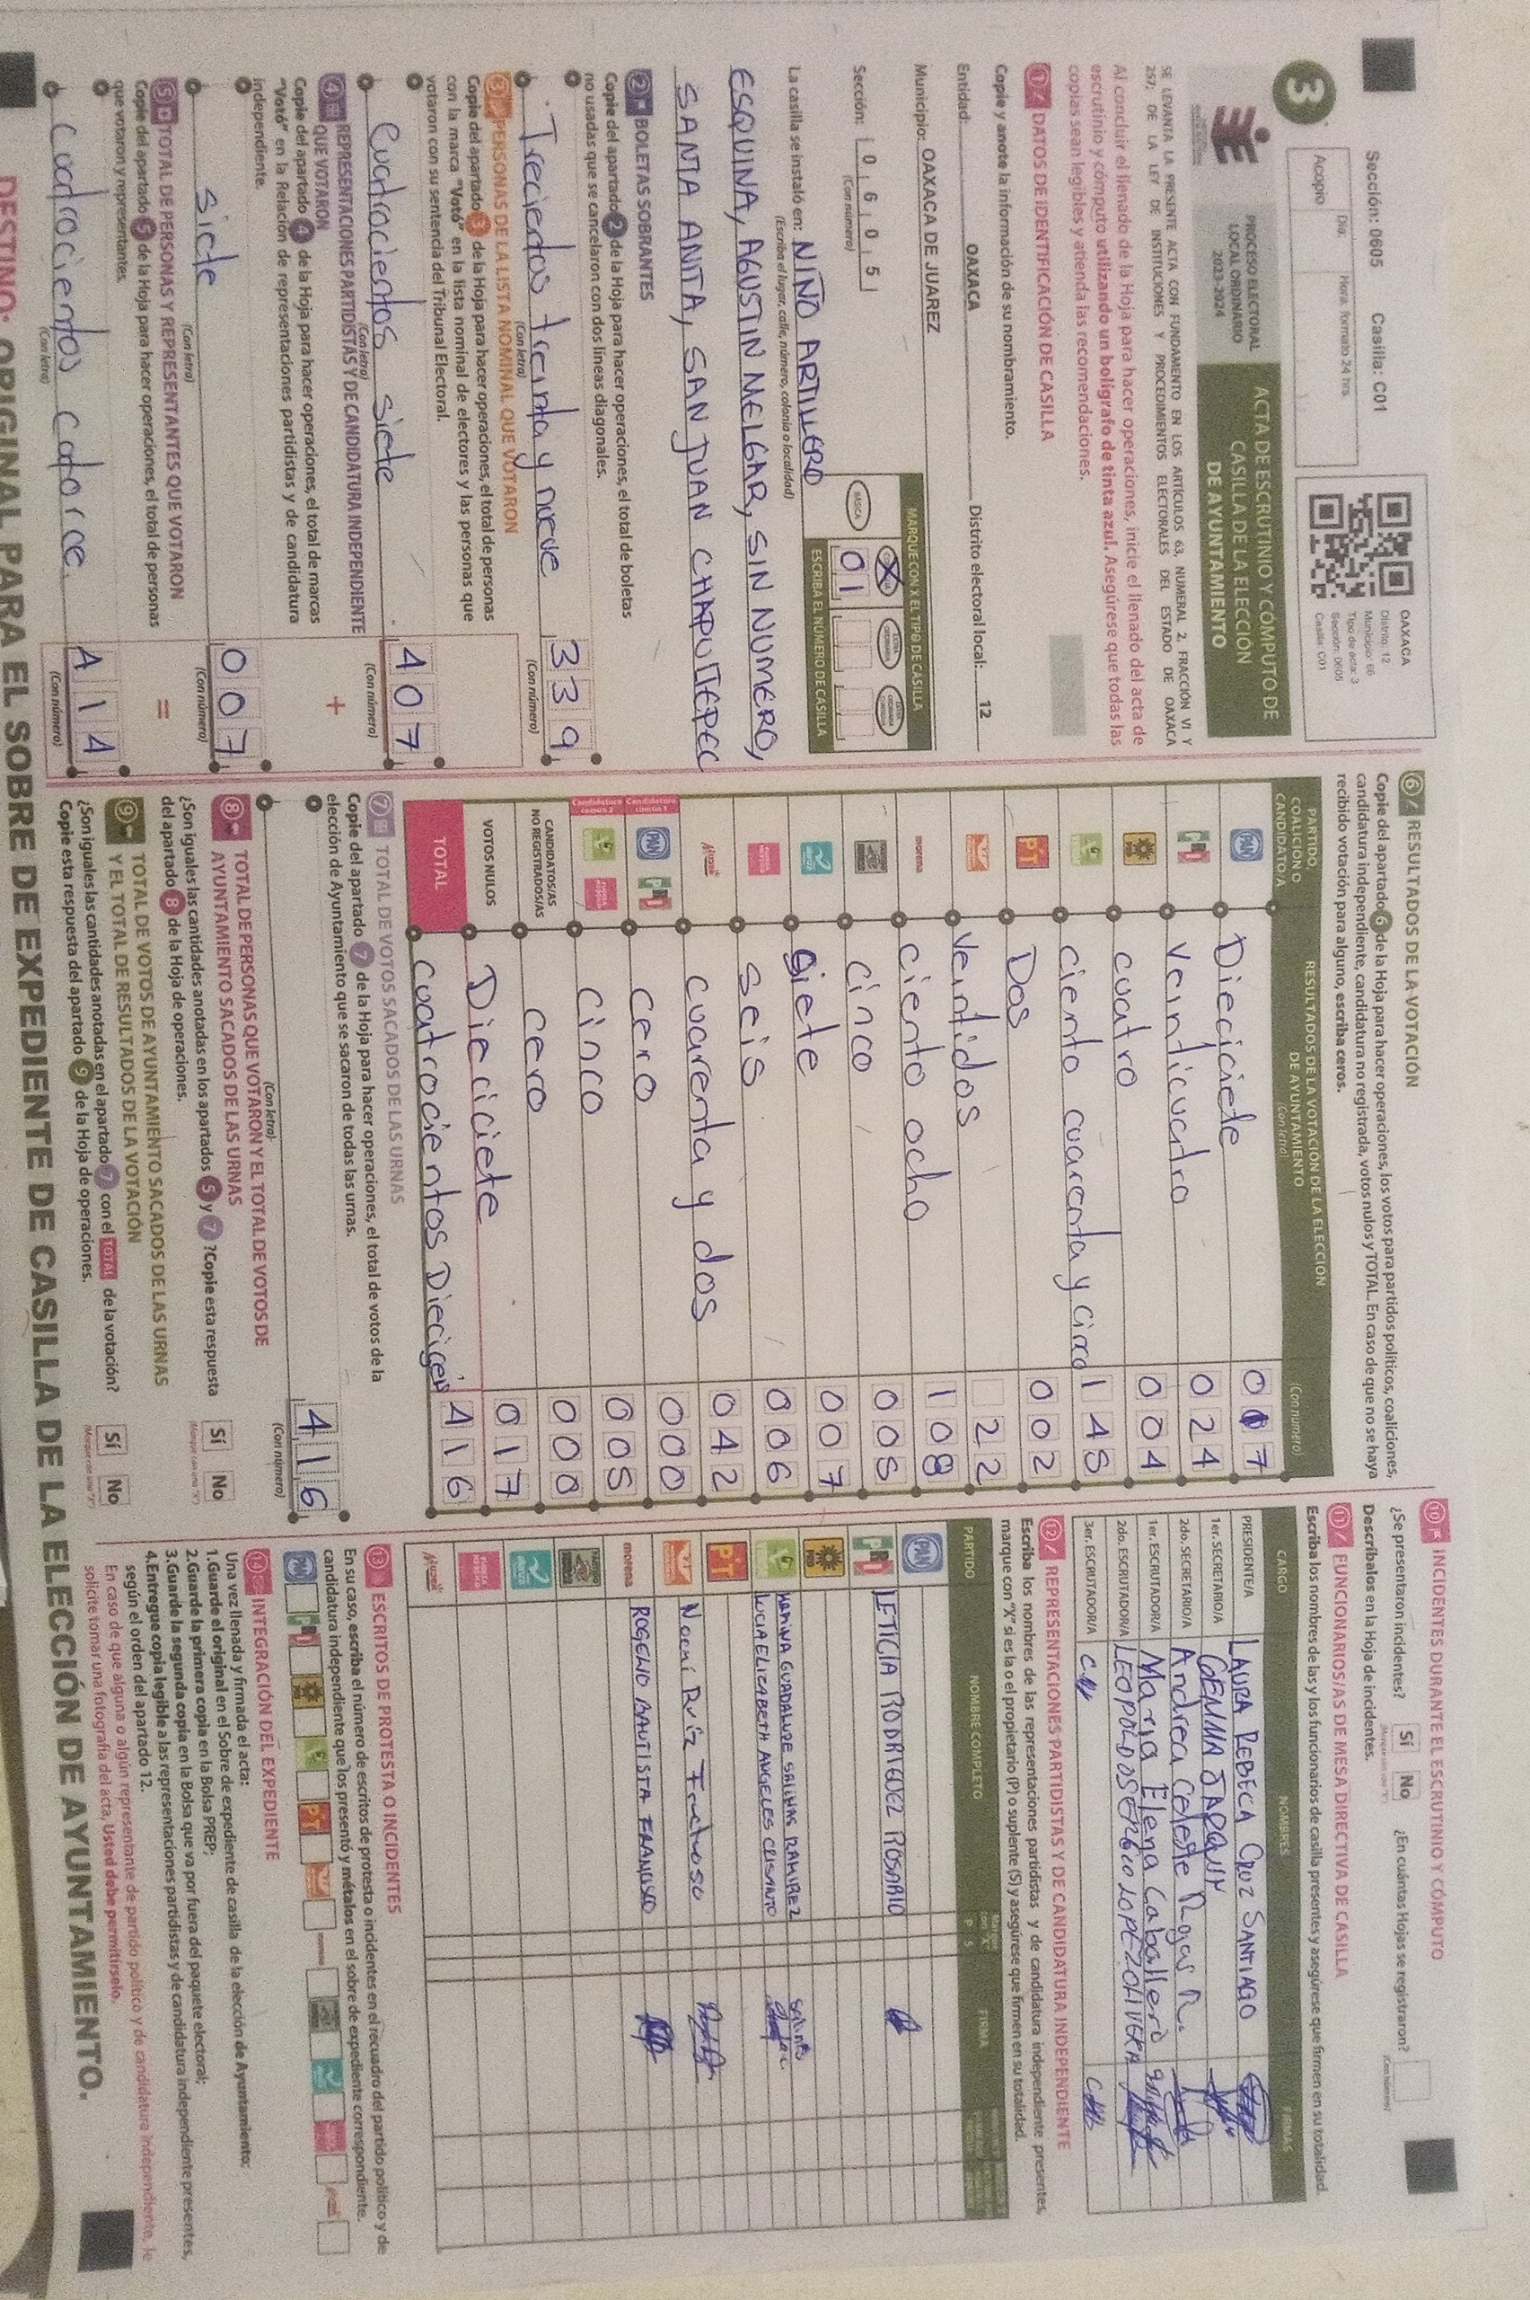 Sección: 0605 Casilla: C01
Día: Hora, formato 24 hrs
Acopio
OAXACA
Distrito: 12
Municipio: 66
Tipo de acta: 3
Sección: 0605
Casilla: C01
3
PROCESO ELECTORAL
LOCAL ORDINARIO
2023-2024
ACTA DE ESCRUTINIO Y CÓMPUTO DE
CASILLA DE LA ELECCIÓN
DE AYUNTAMIENTO
SE LEVANTA LA PRESENTE ACTA CON FUNDAMENTO EN LOS ARTÍCULOS 63, NUMERAL 2, FRACCIÓN VI Y
257; DE LA LEY DE INSTITUCIONES Y PROCEDIMIENTOS ELECTORALES DEL ESTADO DE OAXACA
Al concluir el llenado de la Hoja para hacer operaciones, inicie el llenado del acta de
escrutinio y cómputo utilizando un bolígrafo de tinta azul. Asegúrese que todas las
copias sean legibles y atienda las recomendaciones.
1 DATOS DE IDENTIFICACIÓN DE CASILLA
Copie y anote la información de su nombramiento.
Entidad: OAXACA Distrito electoral local: 12
Municipio: OAXACA DE JUAREZ
MARQUE CON X EL TIPO DE CASILLA
Sección: 0 6 0 5
(Con número)
BÁSICA
ESCRIBA EL NÚMERO DE CASILLA
01
La casilla se instaló en: NIÑO ARTILLERO
(Escriba el lugar, calle, número, colonia o localidad)
ESQUINA, AGUSTIN MELGAR, SIN NUMERO,
SANTA ANITA, SAN JUAN CHAPULTEPEC
2 BOLETAS SOBRANTES
Copie del apartado 2 de la Hoja para hacer operaciones, el total de boletas
no usadas que se cancelaron con dos líneas diagonales.
Trecientos treinta y nueve 339
(Con letra) (Con número)
3 PERSONAS DE LA LISTA NOMINAL QUE VOTARON
Copie del apartado 3 de la Hoja para hacer operaciones, el total de personas
con la marca "Votó" en la lista nominal de electores y las personas que
votaron con su sentencia del Tribunal Electoral.
Cuatrocientos siete 407
(Con letra) (Con número)
4 REPRESENTACIONES PARTIDISTAS Y DE CANDIDATURA INDEPENDIENTE
QUE VOTARON
Copie del apartado 4 de la Hoja para hacer operaciones, el total de marcas
"Votó" en la Relación de representaciones partidistas y de candidatura
independiente.
+
siete 007
(Con letra) (Con número)
5 TOTAL DE PERSONAS Y REPRESENTANTES QUE VOTARON
Copie del apartado 5 de la Hoja para hacer operaciones, el total de personas
que votaron y representantes.
=
Cuatrocientos catorce. 414
(Con letra) (Con número)
6 RESULTADOS DE LA VOTACIÓN
Copie del apartado 6 de la Hoja para hacer operaciones, los votos para partidos políticos, coaliciones,
candidatura independiente, candidatura no registrada, votos nulos y TOTAL. En caso de que no se haya
recibido votación para alguno, escriba ceros.
PARTIDO,
COALICIÓN O
CANDIDATO/A
RESULTADOS DE LA VOTACIÓN DE LA ELECCIÓN
DE AYUNTAMIENTO
(Con letra) (Con número)
PAN Dieciciete 017
PRI Veinticuatro 024
PRD cuatro 004
ciento cuarenta y cinco 145
PT Dos 002
Veintidos 22
morena ciento ocho 108
cinco 005
siete 007
seis 006
cuarenta y dos 042
PAN PRI cero 000
cinco 005
CANDIDATOS/AS
NO REGISTRADOS/AS cero 000
VOTOS NULOS Dieciciete 017
TOTAL cuatrocientos Dieciceis 416
7 TOTAL DE VOTOS SACADOS DE LAS URNAS
Copie del apartado 7 de la Hoja para hacer operaciones, el total de votos de la
elección de Ayuntamiento que se sacaron de todas las urnas.
416
(Con letra) (Con número)
8 TOTAL DE PERSONAS QUE VOTARON Y EL TOTAL DE VOTOS DE
AYUNTAMIENTO SACADOS DE LAS URNAS
¿Son iguales las cantidades anotadas en los apartados 5 y 7 ?Copie esta respuesta
del apartado 8 de la Hoja de operaciones.
Sí No
9 TOTAL DE VOTOS DE AYUNTAMIENTO SACADOS DE LAS URNAS
Y EL TOTAL DE RESULTADOS DE LA VOTACIÓN
¿Son iguales las cantidades anotadas en el apartado 7 con el TOTAL de la votación?
Copie esta respuesta del apartado 9 de la Hoja de operaciones.
Sí No
10 INCIDENTES DURANTE EL ESCRUTINIO Y CÓMPUTO
¿Se presentaron incidentes? Sí No ¿En cuántas Hojas se registraron?
Descríbalos en la Hoja de incidentes.
11 FUNCIONARIOS/AS DE MESA DIRECTIVA DE CASILLA
Escriba los nombres de las y los funcionarios de casilla presentes y asegúrese que firmen en su totalidad.
CARGO NOMBRES FIRMAS
PRESIDENTE/A LAURA REBECA CRUZ SANTIAGO
1er. SECRETARIO/A GEMMA JARQUIN
2do. SECRETARIO/A Andrea Celeste Rojas R.
1er. ESCRUTADOR/A Maria Elena Caballero
2do. ESCRUTADOR/A LEOPOLDO SERGIO LOPEZ OLIVERA
3er. ESCRUTADOR/A
12 REPRESENTACIONES PARTIDISTAS Y DE CANDIDATURA INDEPENDIENTE
Escriba los nombres de las representaciones partidistas y de candidatura independiente presentes,
marque con "X" si es la o el propietario (P) o suplente (S) y asegúrese que firmen en su totalidad.
PARTIDO NOMBRE COMPLETO P S FIRMA
PAN
PRI LETICIA RODRIGUEZ ROSARIO
PRD
KARINA GUADALUPE SALINAS RAMIREZ
LUCIA ELIZABETH ANGELES CRISANTO
PT
Noemi Ruiz Fructuoso
morena ROGELIO BAUTISTA FRANCISCO
13 ESCRITOS DE PROTESTA O INCIDENTES
En su caso, escriba el número de escritos de protesta o incidentes en el recuadro del partido político y de
candidatura independiente que los presentó y métalos en el sobre de expediente correspondiente.
PAN PRI PRD PT
14 INTEGRACIÓN DEL EXPEDIENTE
Una vez llenada y firmada el acta:
1.Guarde el original en el Sobre de expediente de casilla de la elección de Ayuntamiento;
2.Guarde la primera copia en la Bolsa PREP;
3.Guarde la segunda copia en la Bolsa que va por fuera del paquete electoral;
4.Entregue copia legible a las representaciones partidistas y de candidatura independiente presentes,
según el orden del apartado 12.
En caso de que alguna o algún representante de partido político y de candidatura independiente, le
solicite tomar una fotografía del acta, Usted debe permitírselo.
DESTINO: ORIGINAL PARA EL SOBRE DE EXPEDIENTE DE CASILLA DE LA ELECCIÓN DE AYUNTAMIENTO.